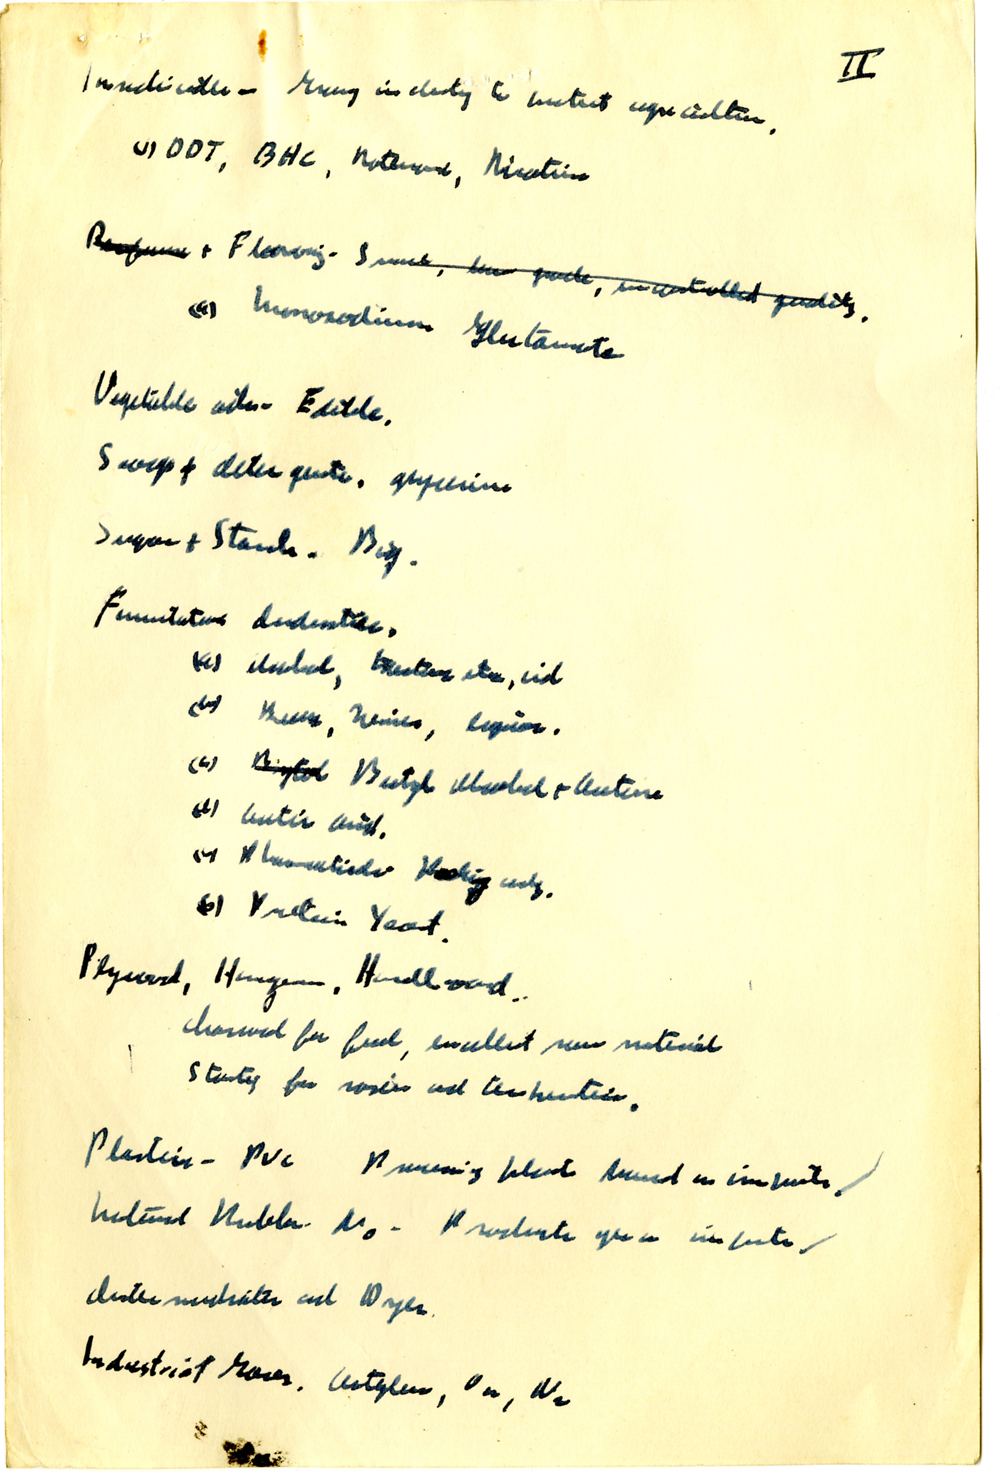 II
Insecticides - Young industry to protect agriculture.
(1) DDT, BHC, Rotenone, Nicotine
Perfume + Flavoring - Small, low grade, uncontrolled quality.
(a) Monosodium Glutamate
Vegetable oils - Edible.
Soap & detergents, glycerine
Sugar + Starch - Big.
Fermentation Industries.
(a) Alcohol, acid
(b) Beer, Wines, liquor.
(c) Butyl Alcohol + Acetone
(d) Acetic acid.
(e) Pharmaceuticals only.
(f) Protein Yeast.
Plywood, Hardboard.
Charcoal for fuel, excellent raw material
Study for rosin and turpentine.
Plastics - PVC Processing plants based on imports.
Natural Rubber - No - Products from imports
Intermediates and Dyes.
Industrial Gases. Acetylene, O₂, N₂